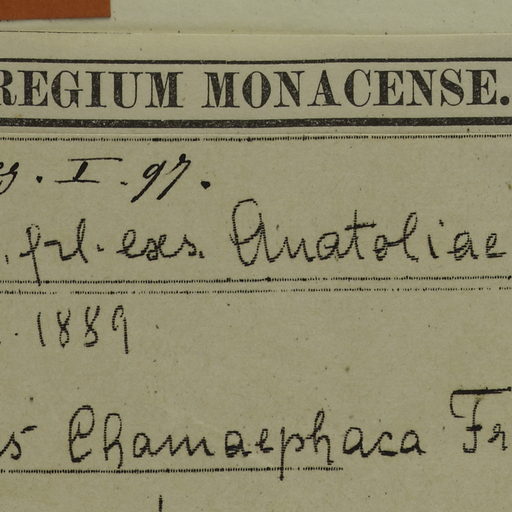 REGIUM MONACENSE.
. I. 97.
. frl. exs. Anatoliae
. 1889
s Chamaephaca Fr